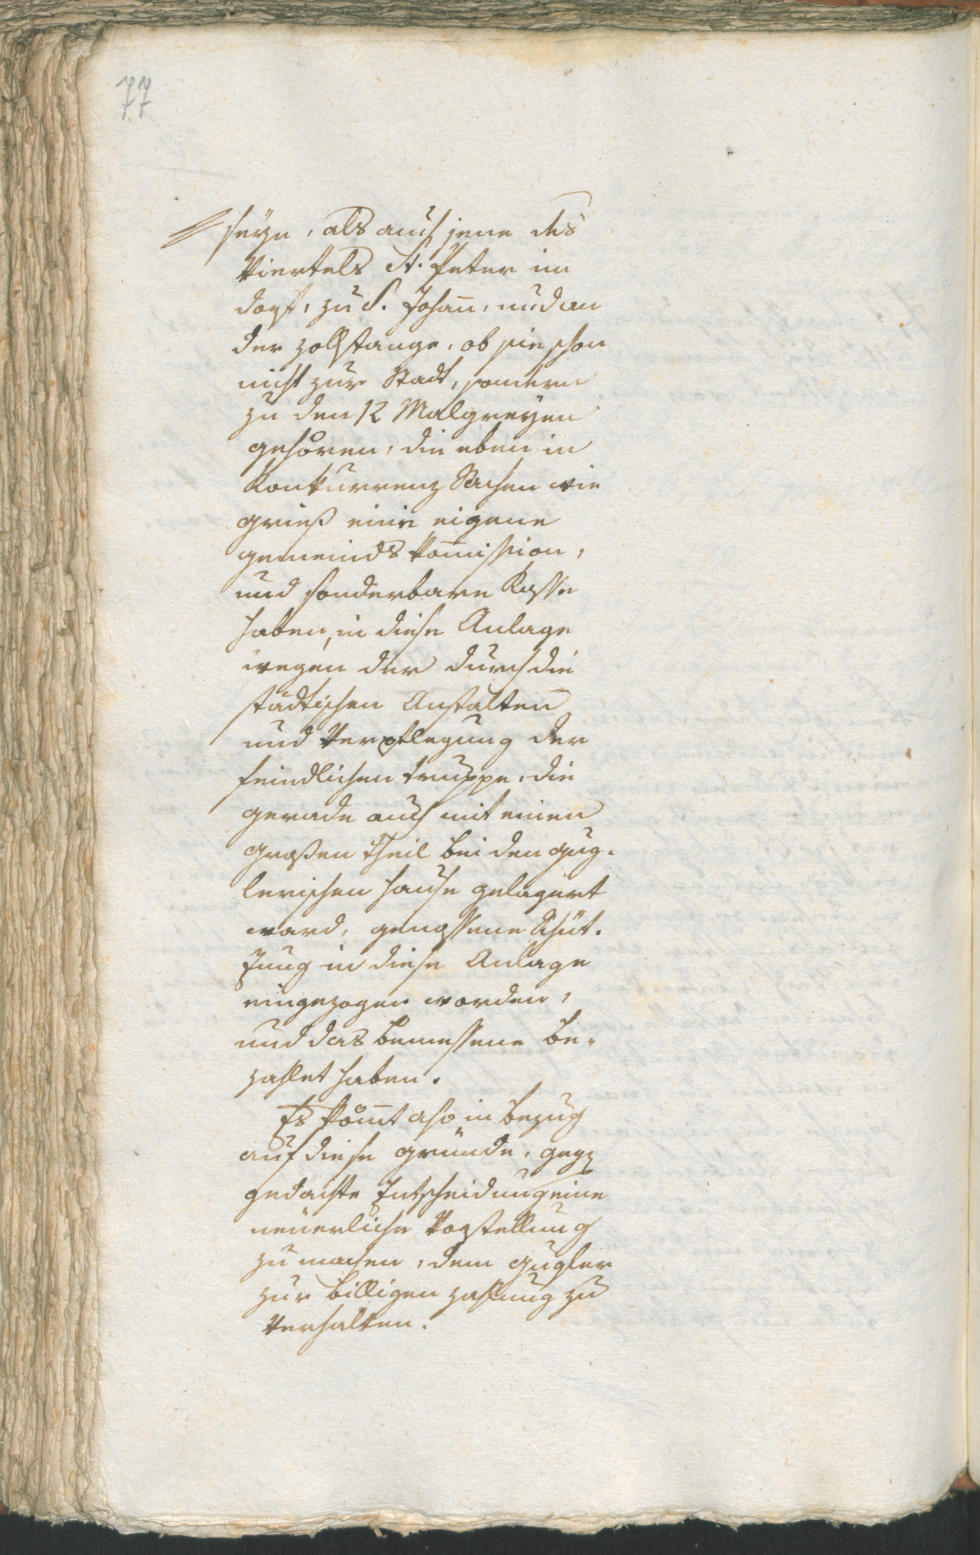 77
seyn, als auch jene des
Viertels St. Peter im
Dorf, zu S. Johan̄, und an
der Zollstange, ob sie schon
nicht zur Stadt, sondern
zu den 12 Malgreyen
gehören, die eben in
Konkurrenz Sachen wie
Grieß eine eigene
Gemeinds Kom̄ission,
und sonderbare Kasse
haben, in diese Anlage
wegen der durch die
städtischen Anstalten
und Verpflegung der
feindlichen Truppe, die
gerade auch mit einen
großen Theil bei den Gug-
lerischen Hause gelagert
ward, genossene Schüt-
zung in diese Anlage
eingezogen worden,
und das bemessene be-
zahlet haben.
Es köm̄t also in bezug
auf diese Gründe, gegen
gedachte Entscheidung eine
neuerliche Vorstellung
zu machen, dem Gugler
zur billigen Zahlung zu
Verhalten.